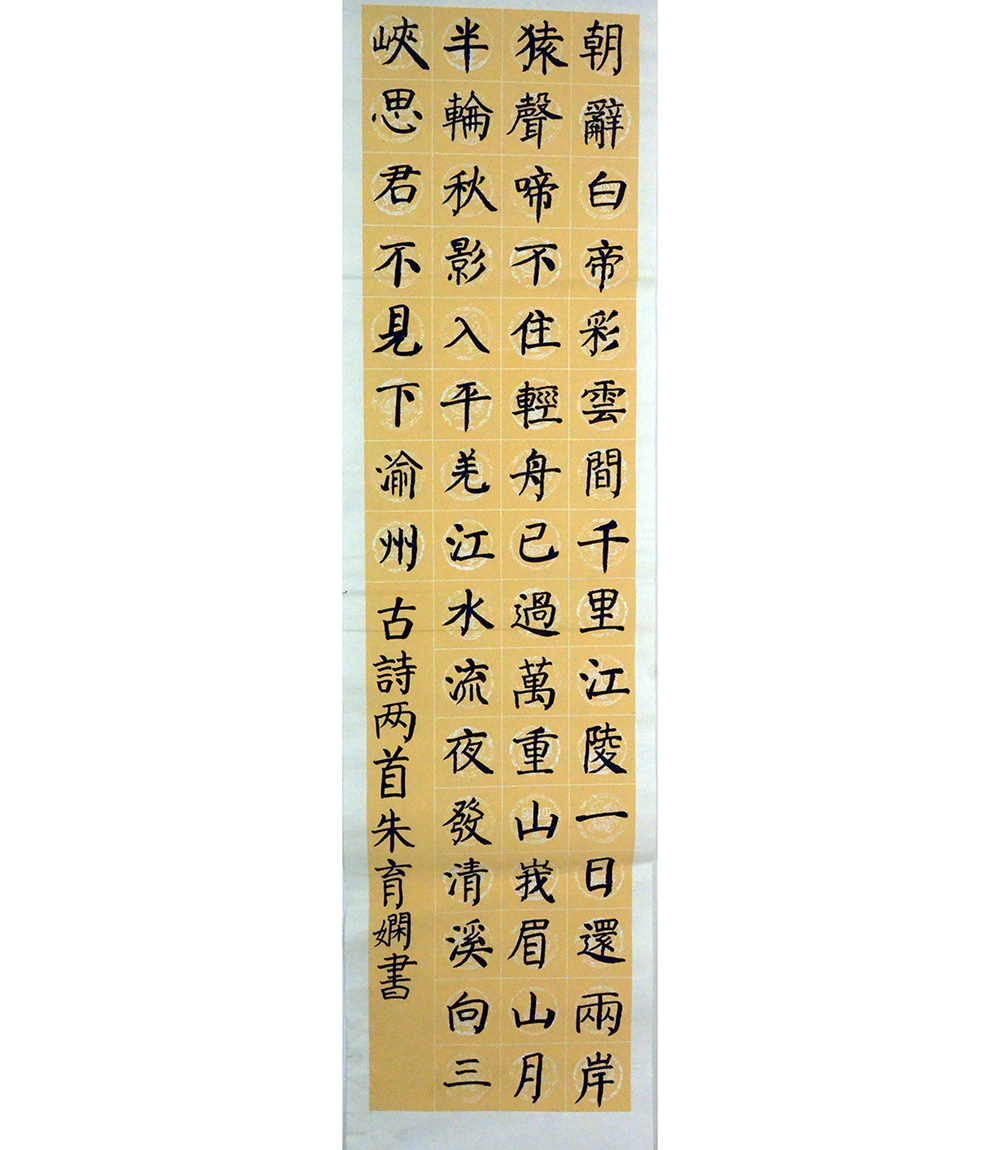 朝辭白帝彩雲間千里江陵一日還兩岸
猿聲啼不住輕舟已過萬重山峩眉山月
半輪秋影入平羌江水流夜發清溪向三
峽思君不見下渝州古詩两首朱育嫻書